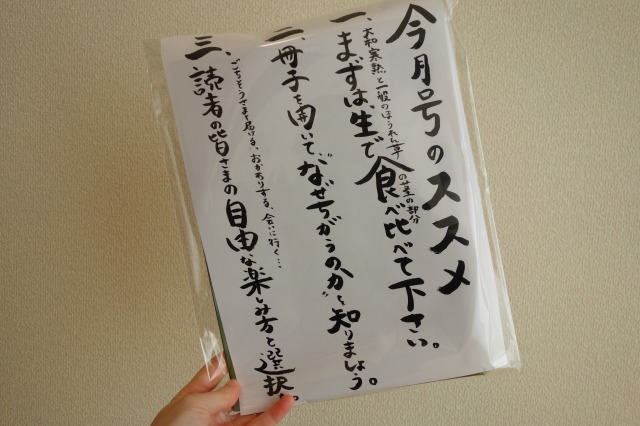 今月号のススメ
一、まずは、生で食べ比べて下さい。
大和寒熟と一般のほうれん草の茎の部分
二、冊子を開いて、"なぜちがうのか"を知りましょう。
三、読者の皆さまの自由な楽しみ方を選択。
ごちそうさまを届ける、おかわりする、会いに行く…